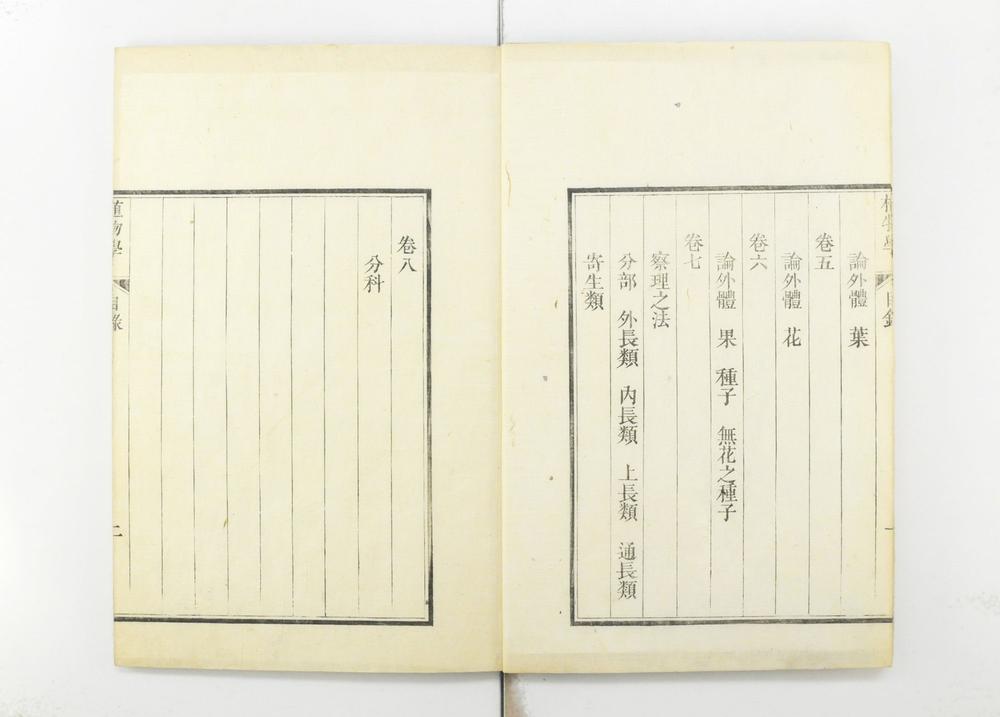 植物學 目錄 一
論外體 葉
卷五
論外體 花
卷六
論外體 果 種子 無花之種子
卷七
察理之法
分部 外長類 內長類 上長類 通長類
寄生類
卷八
分科
植物學 目錄 二